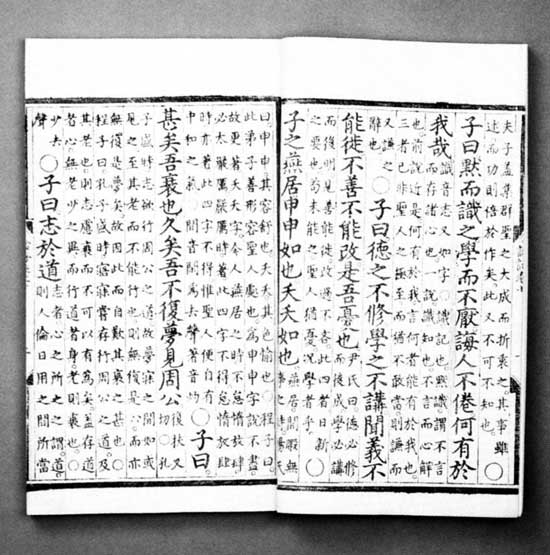 夫子蓋集群聖之大成而折衷之其事雖
述而功則倍於作矣此又不可不知也○
子曰默而識之學而不厭誨人不倦何有於
我哉
識音志又如字○識記也默識謂不言
而存諸心也一說識知也不言而心解
也前說近是何有於我言何者能有於我也
三者已非聖人之極至而猶不敢當則謙而
又謙之
辭也
○子曰德之不修學之不講聞義不
能徙不善不能改是吾憂也
尹氏曰德必修
而後成學必講
而後明見善能徙改過不吝此四者日新
之要也苟未能之聖人猶憂況學者乎○
子之燕居申申如也夭夭如也
燕居間暇無
事之時楊氏
曰申申其容舒也夭夭其色愉也○程子曰
此弟子善形容聖人處也為申申字說不盡
故更著夭夭字今人燕居之時不怠惰放肆
必太嚴厲嚴厲時著此四字不得怠惰放肆
時亦著此四字不得惟聖人便自有
中和之氣○間音閑聲著音
○子曰
甚矣吾衰也久矣吾不復夢見周公
復扶又
切○孔
子盛時志欲行周公之道故夢寐之間如或
見之至其老而不能行也則無復是心而亦
無復是夢矣故因此而自歎其衰之甚也○
程子曰孔子盛時寤寐常存行周公之道及
其老也則志慮衰而不可以有為矣蓋存道
者心無老少之異而行道者身老則衰也○
少去
聲
○子曰志於道
志者心之所之之謂道
則人倫日用之間所當